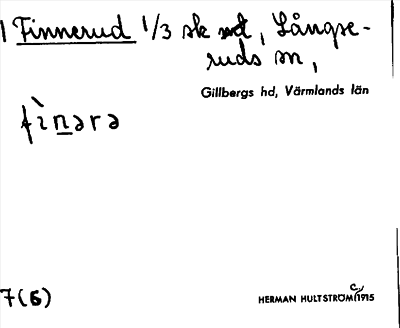 1 Finnerud 1/3 sk nd, Långse-
ruds sn,
Gillbergs hd, Värmlands län
fìn̲ərə
7(6)
HERMAN HULTSTRÖM c./1915